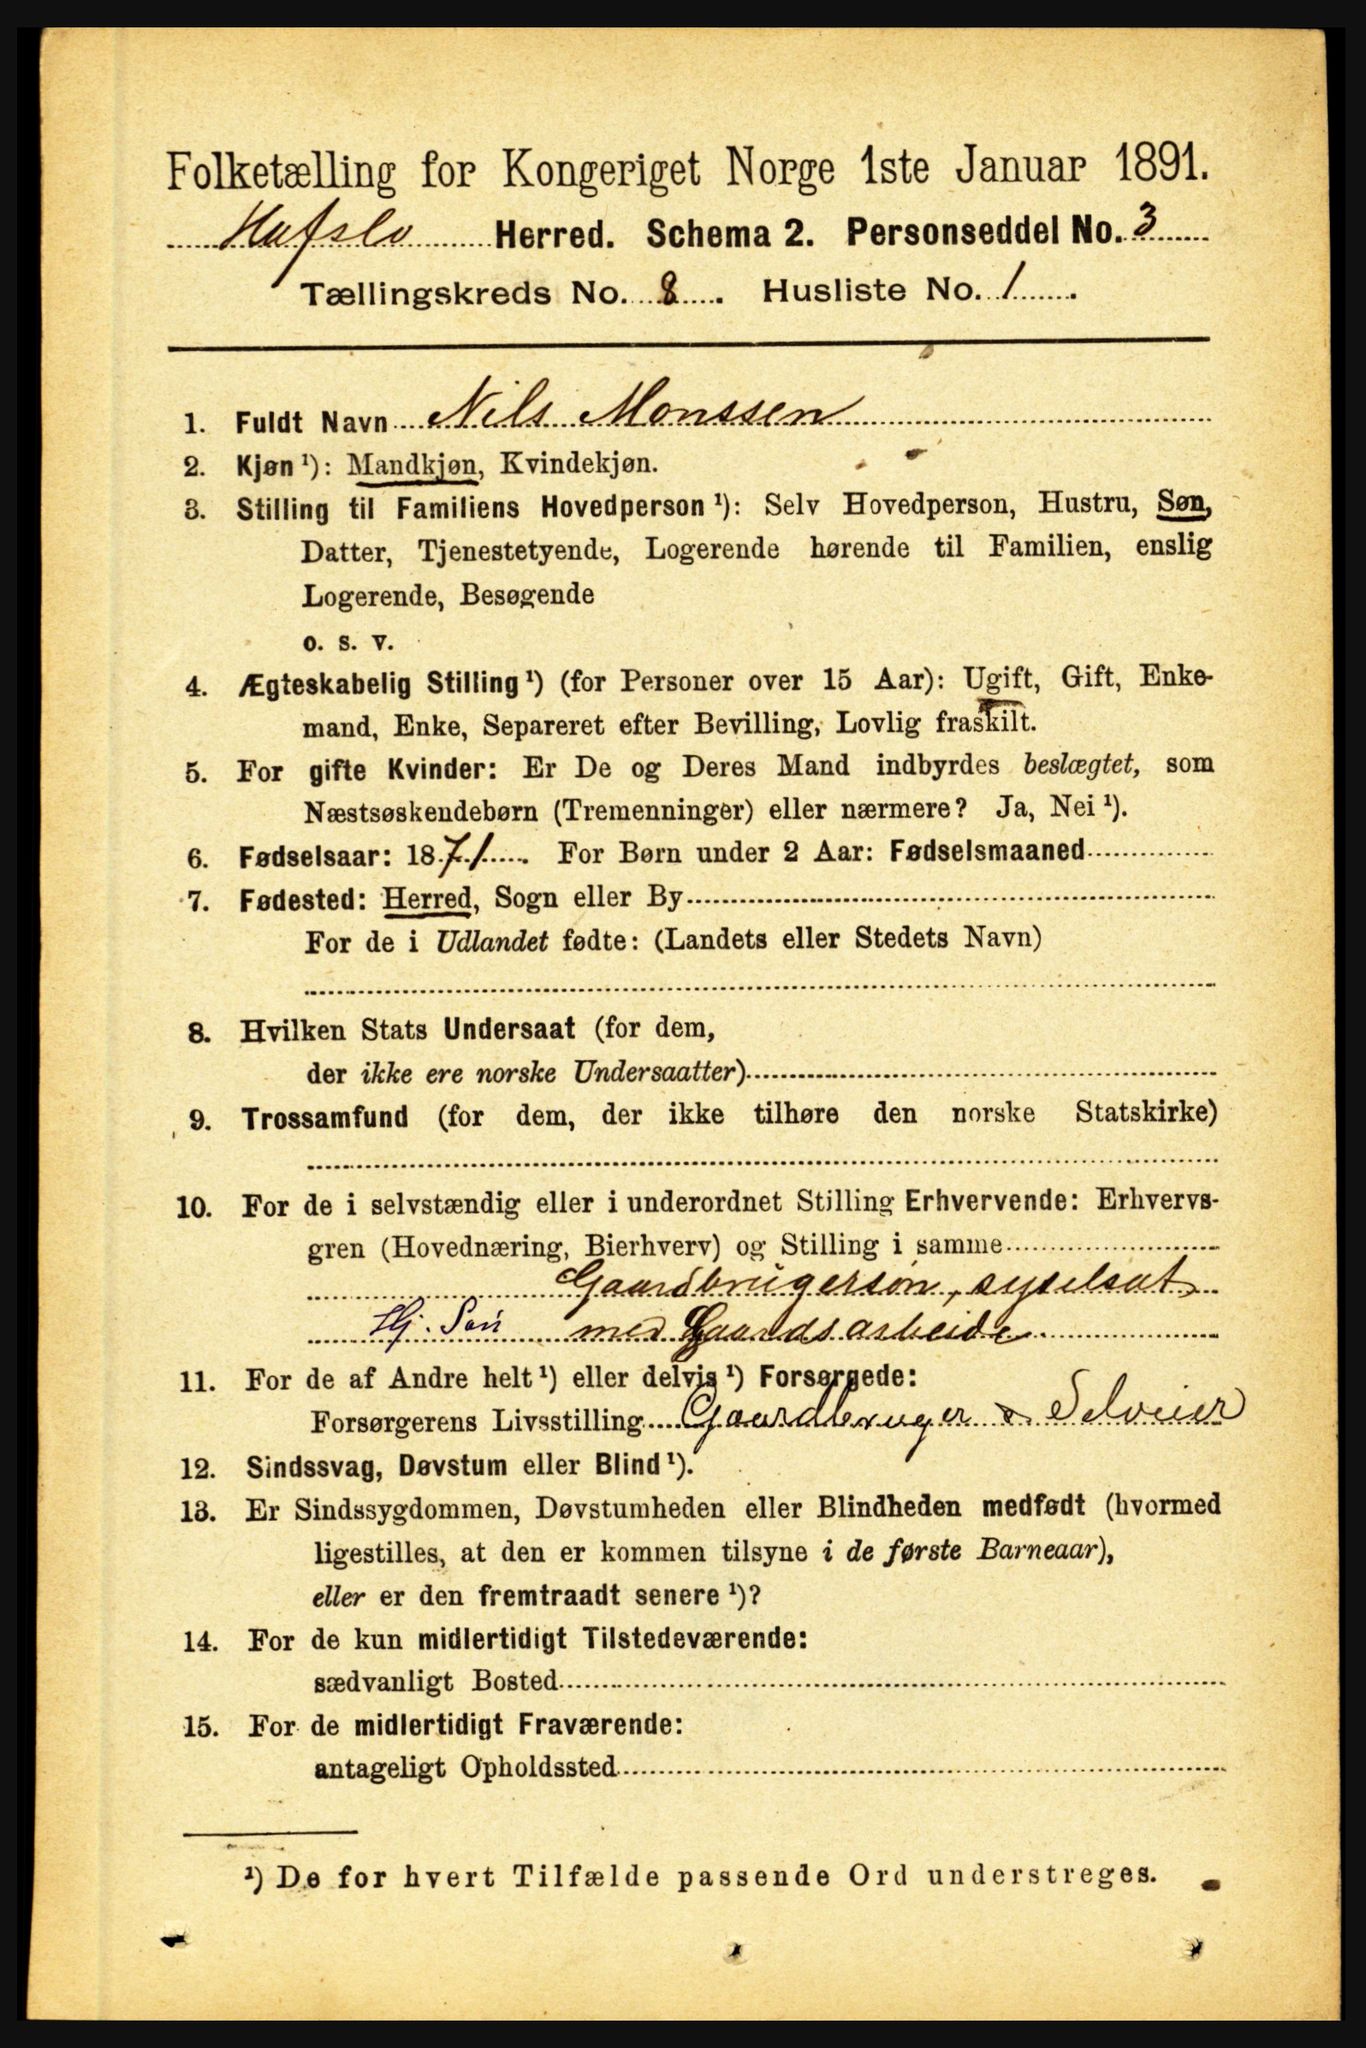 Folketælling for Kongeriget Norge 1ste Januar 1891.
Hafslo Herred. Schema 2. Personseddel No. 3
Tællingskreds No. 8. Husliste No. 1.
1. Fuldt Navn Nils Monssen
2. Kjøn ¹): Mandkjøn, Kvindekjøn.
3. Stilling til Familiens Hovedperson ¹): Selv Hovedperson, Hustru, Søn,
Datter, Tjenestetyende, Logerende hørende til Familien, enslig
Logerende, Besøgende
o. s. v.
4. Ægteskabelig Stilling ¹) (for Personer over 15 Aar): Ugift, Gift, Enke-
mand, Enke, Separeret efter Bevilling, Lovlig fraskilt.
5. For gifte Kvinder: Er De og Deres Mand indbyrdes beslægtet, som
Næstsøskendebørn (Tremenninger) eller nærmere? Ja, Nei ¹).
6. Fødselsaar: 1871. For Børn under 2 Aar: Fødselsmaaned
7. Fødested: Herred, Sogn eller By
For de i Udlandet fødte: (Landets eller Stedets Navn)
8. Hvilken Stats Undersaat (for dem,
der ikke ere norske Undersaatter)
9. Trossamfund (for dem, der ikke tilhøre den norske Statskirke)
10. For de i selvstændig eller i underordnet Stilling Erhvervende: Erhvervs-
gren (Hovednæring, Bierhverv) og Stilling i samme
Gaardbrugersøn, sysselsat
Hj. Søn med Gaardsarbeide
11. For de af Andre helt ¹) eller delvis ¹) Forsørgede:
Forsørgerens Livsstilling Gaardbruger & Selveier
12. Sindssvag, Døvstum eller Blind ¹).
13. Er Sindssygdommen, Døvstumheden eller Blindheden medfødt (hvormed
ligestilles, at den er kommen tilsyne i de første Barneaar),
eller er den fremtraadt senere ¹)?
14. For de kun midlertidigt Tilstedeværende:
sædvanligt Bosted
15. For de midlertidigt Fraværende:
antageligt Opholdssted
¹) De for hvert Tilfælde passende Ord understreges.